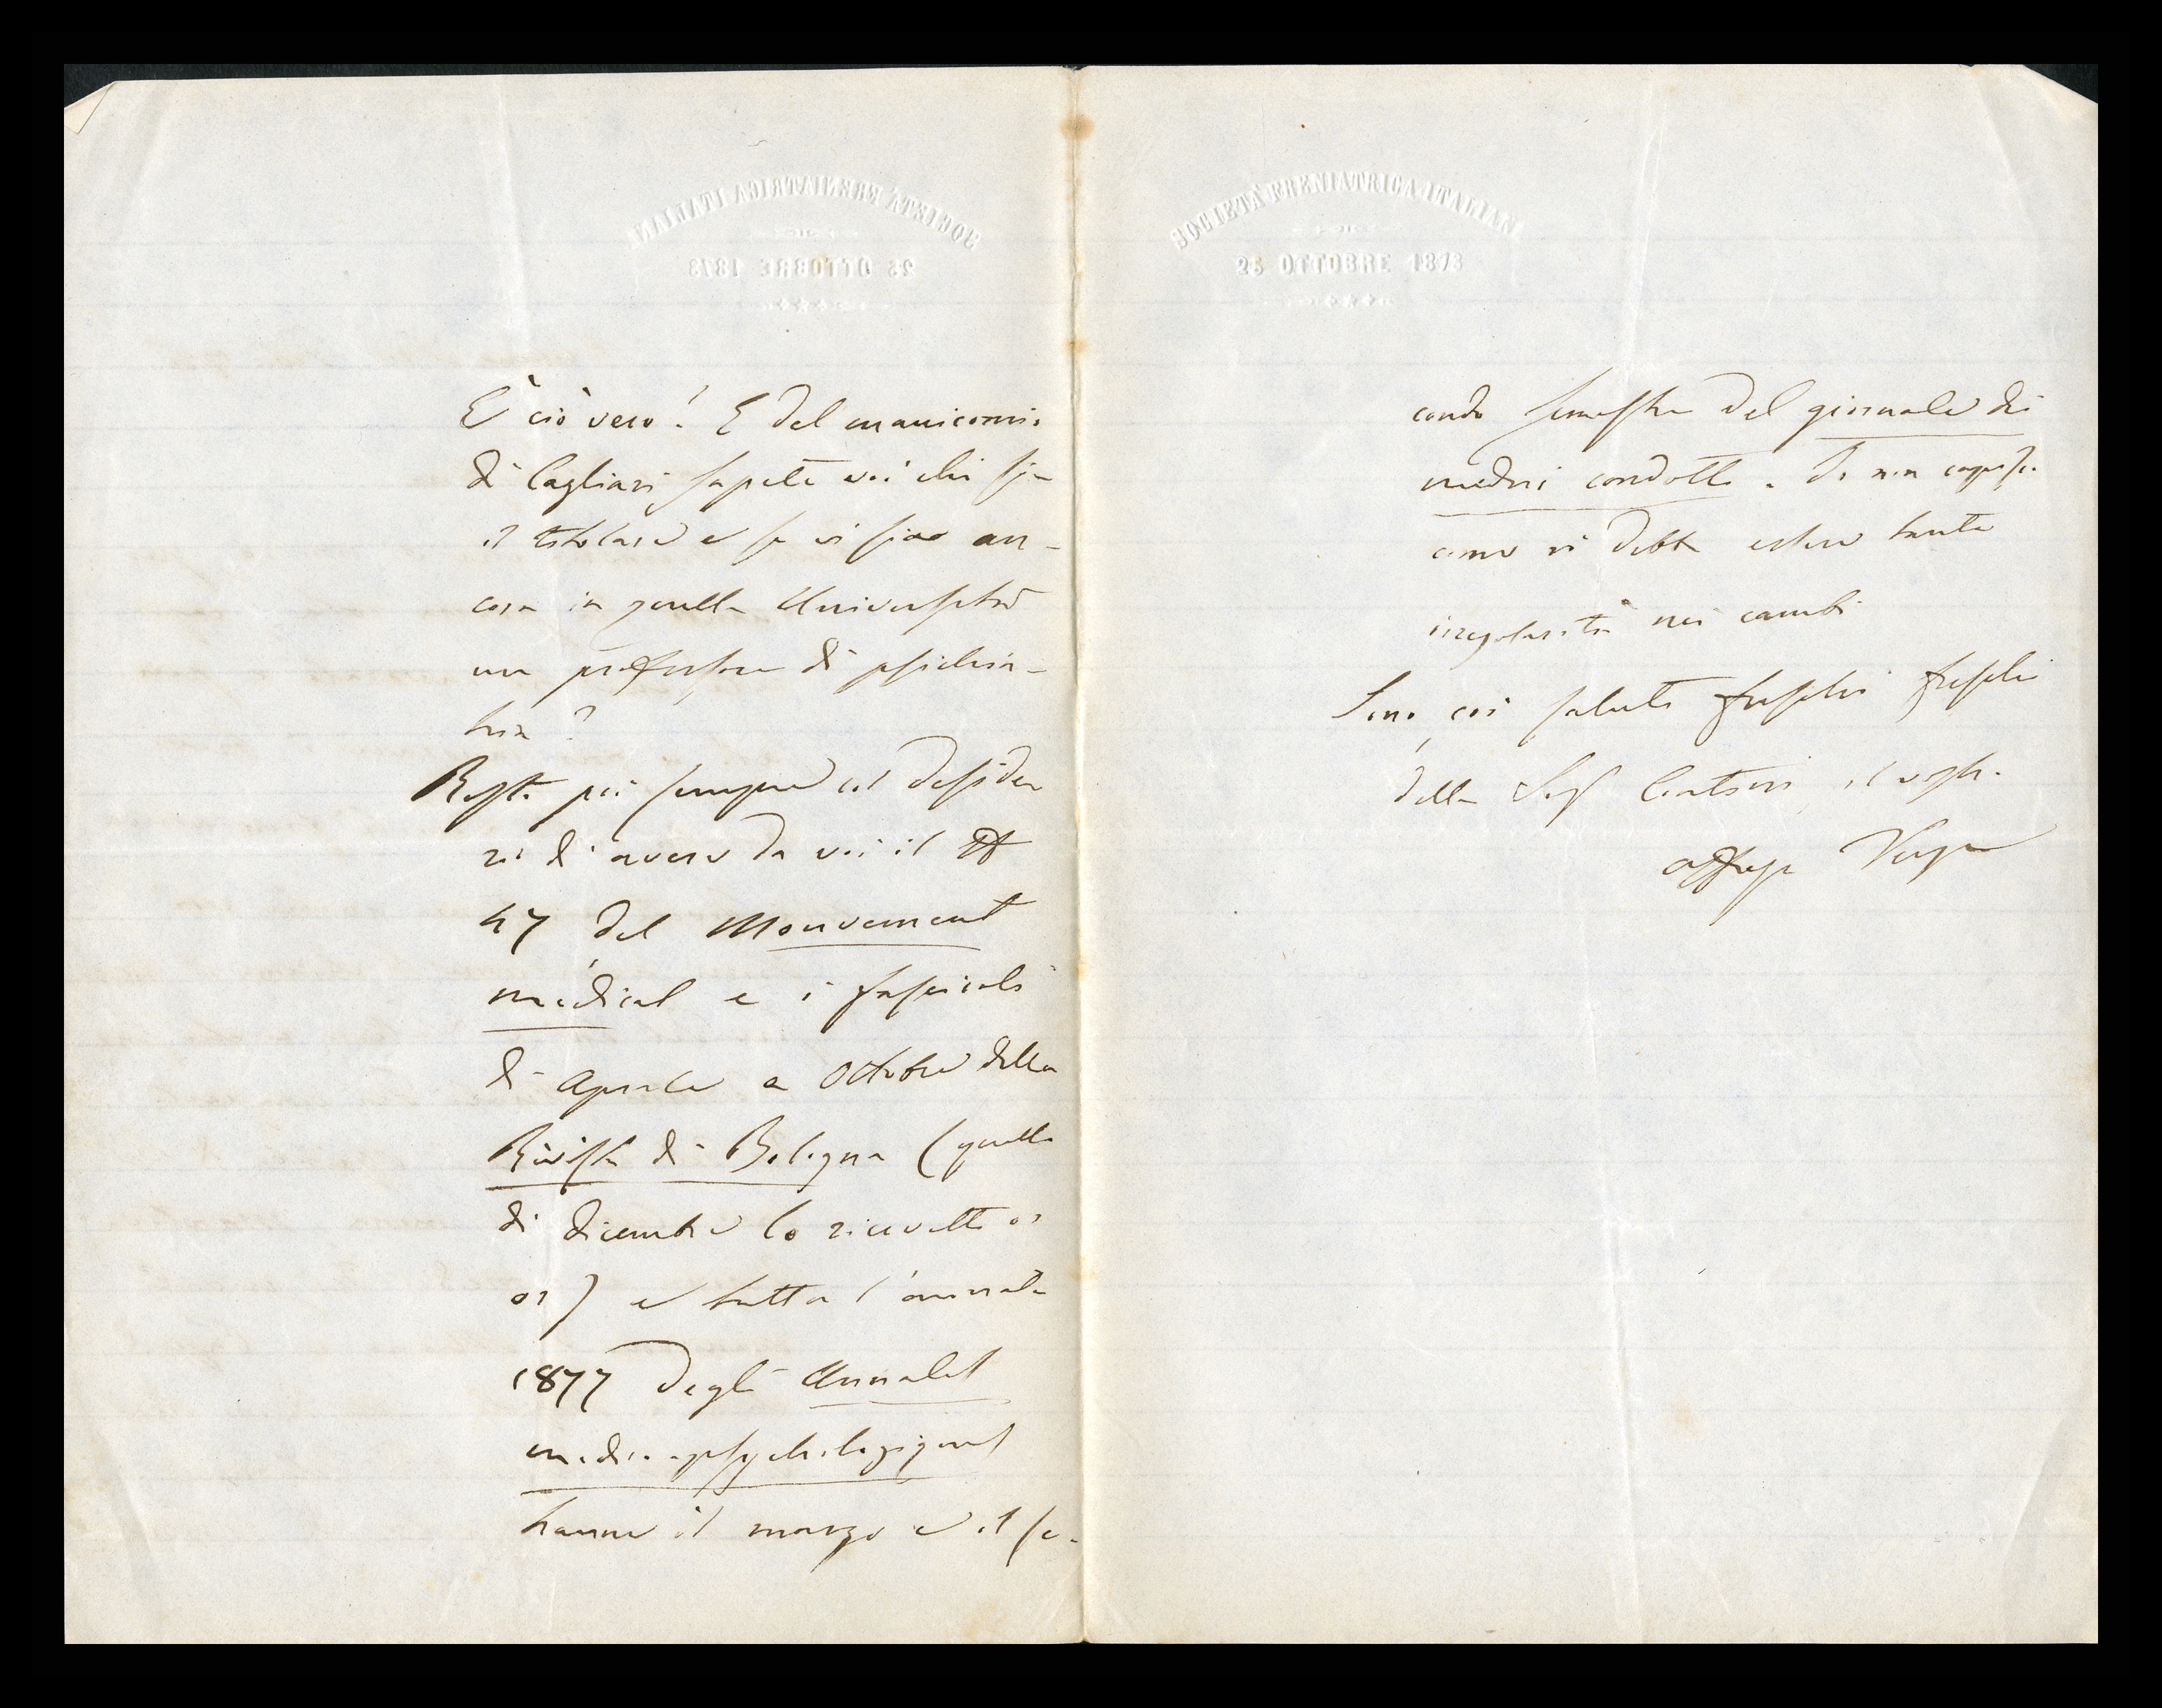 SOCIETÀ FRENIATRICA ITALIANA
25 OTTOBRE 1873
È ciò vero? E del manicomio
di Cagliari sapete voi chi sia
il titolare e se vi sia an-
cora in quella Università
un professore di psichia-
tria?
Resta poi sempre il deside
rio di avere da voi il
47 del Mouvement
médical e i fascicoli
di Aprile e Ottobre della
Rivista di Bologna (quello
di dicembre lo ricevetti or
or) e tutta l'annata
1877 degli Annales
medico-psychologiques
hanne il marzo e il se-
SOCIETÀ FRENIATRICA ITALIANA
25 OTTOBRE 1873
condo semestre del giornale dei
medici condotti. Io non capisco
come vi debba essere tanta
irregolarità nei cambi
Sono coi saluti freschi freschi
della Sig Cantoni il vostro
affez Verga